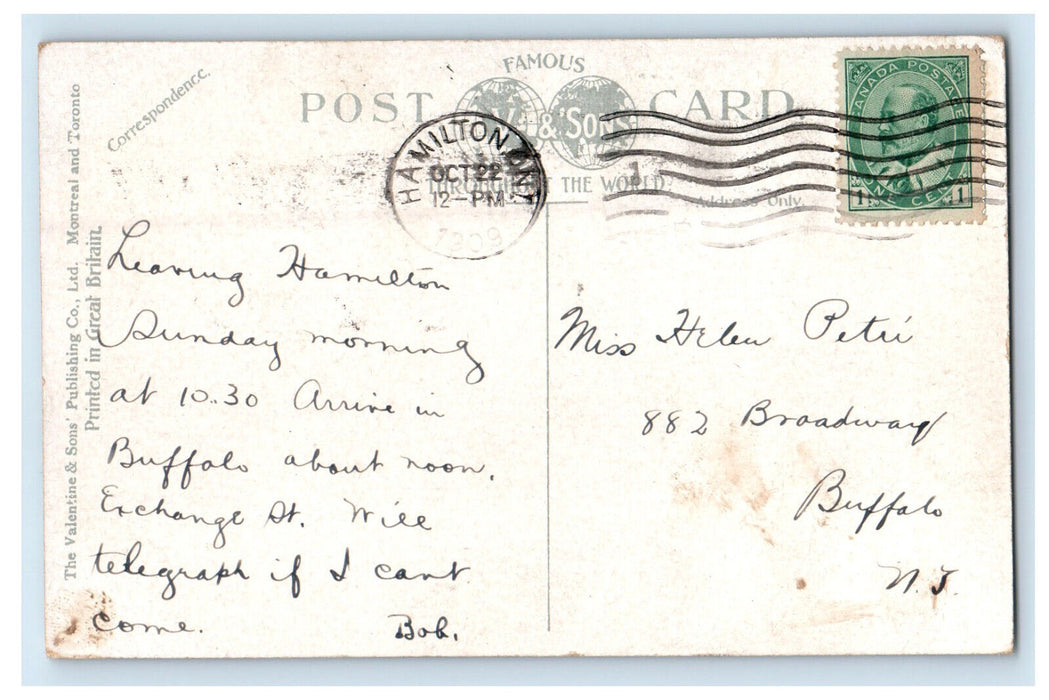 FAMOUS
POST CARD
& Sons
THROUGHOUT THE WORLD
Address Only.
Correspondence.
The Valentine & Sons' Publishing Co., Ltd. Montreal and Toronto
Printed in Great Britain.
HAMILTON, ONT
OCT 22
12-PM
1909
1
CANADA POSTAGE
1 ONE CENT 1
Leaving Hamilton
Sunday morning
at 10.30 Arrive in
Buffalo about noon.
Exchange St. Will
telegraph if I cant
come. Bob.
Miss Helen Petrie
882 Broadway
Buffalo
N.Y.